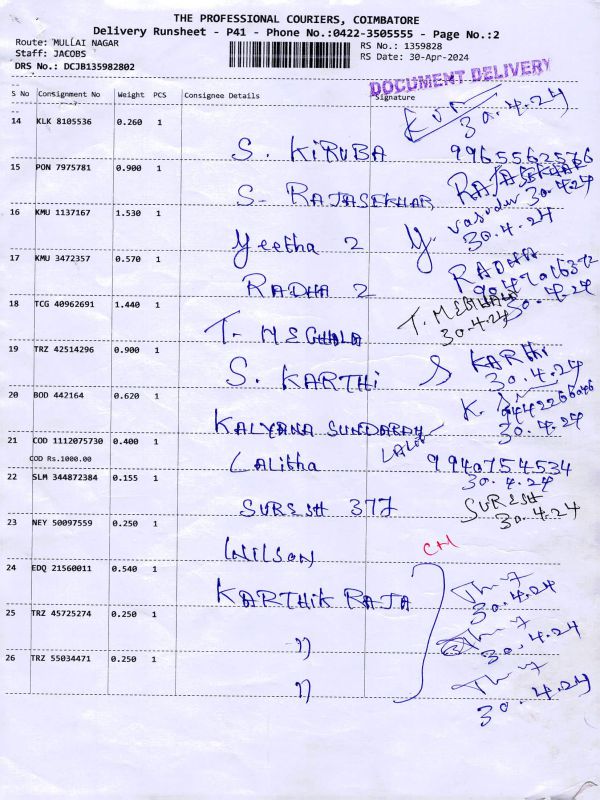 THE PROFESSIONAL COURIERS, COIMBATORE
Delivery Runsheet - P41 - Phone No.:0422-3505555 - Page No.:2
Route: MULLAI NAGAR
Staff: JACOBS
DRS No.: DCJB135982802
RS No.: 1359828
RS Date: 30-Apr-2024
DOCUMENT DELIVERY
S No Consignment No Weight PCS Consignee Details Signature
14 KLK 8105536 0.260 1
30.4.24
S. KIRUBA 9965562576
15 PON 7975781 0.900 1
S. RAJASEKHAR RAJASEKHAR
30.4.24
16 KMU 1137167 1.530 1
Yeetha 2 Y.
30.4.24
17 KMU 3472357 0.570 1
RADHA 2 RADHA
30.4.24
18 TCG 40962691 1.440 1
T. MEGHALA T. MEGHALA
30.4.24
19 TRZ 42514296 0.900 1
S. KARTHI S KARTHI
30.4.24
20 BOD 442164 0.620 1
KALYANA SUNDARAM K.
30.4.24
21 COD 1112075730 0.400 1
COD Rs.1000.00
Lalitha 9940754534
30.4.24
22 SLM 344872384 0.155 1
SURESH 377 SURESH
30.4.24
23 NEY 50097559 0.250 1
WILSON
24 EDQ 21560011 0.540 1
KARTHIK RAJA
30.4.24
25 TRZ 45725274 0.250 1
"
30.4.24
26 TRZ 55034471 0.250 1
"
30.4.24